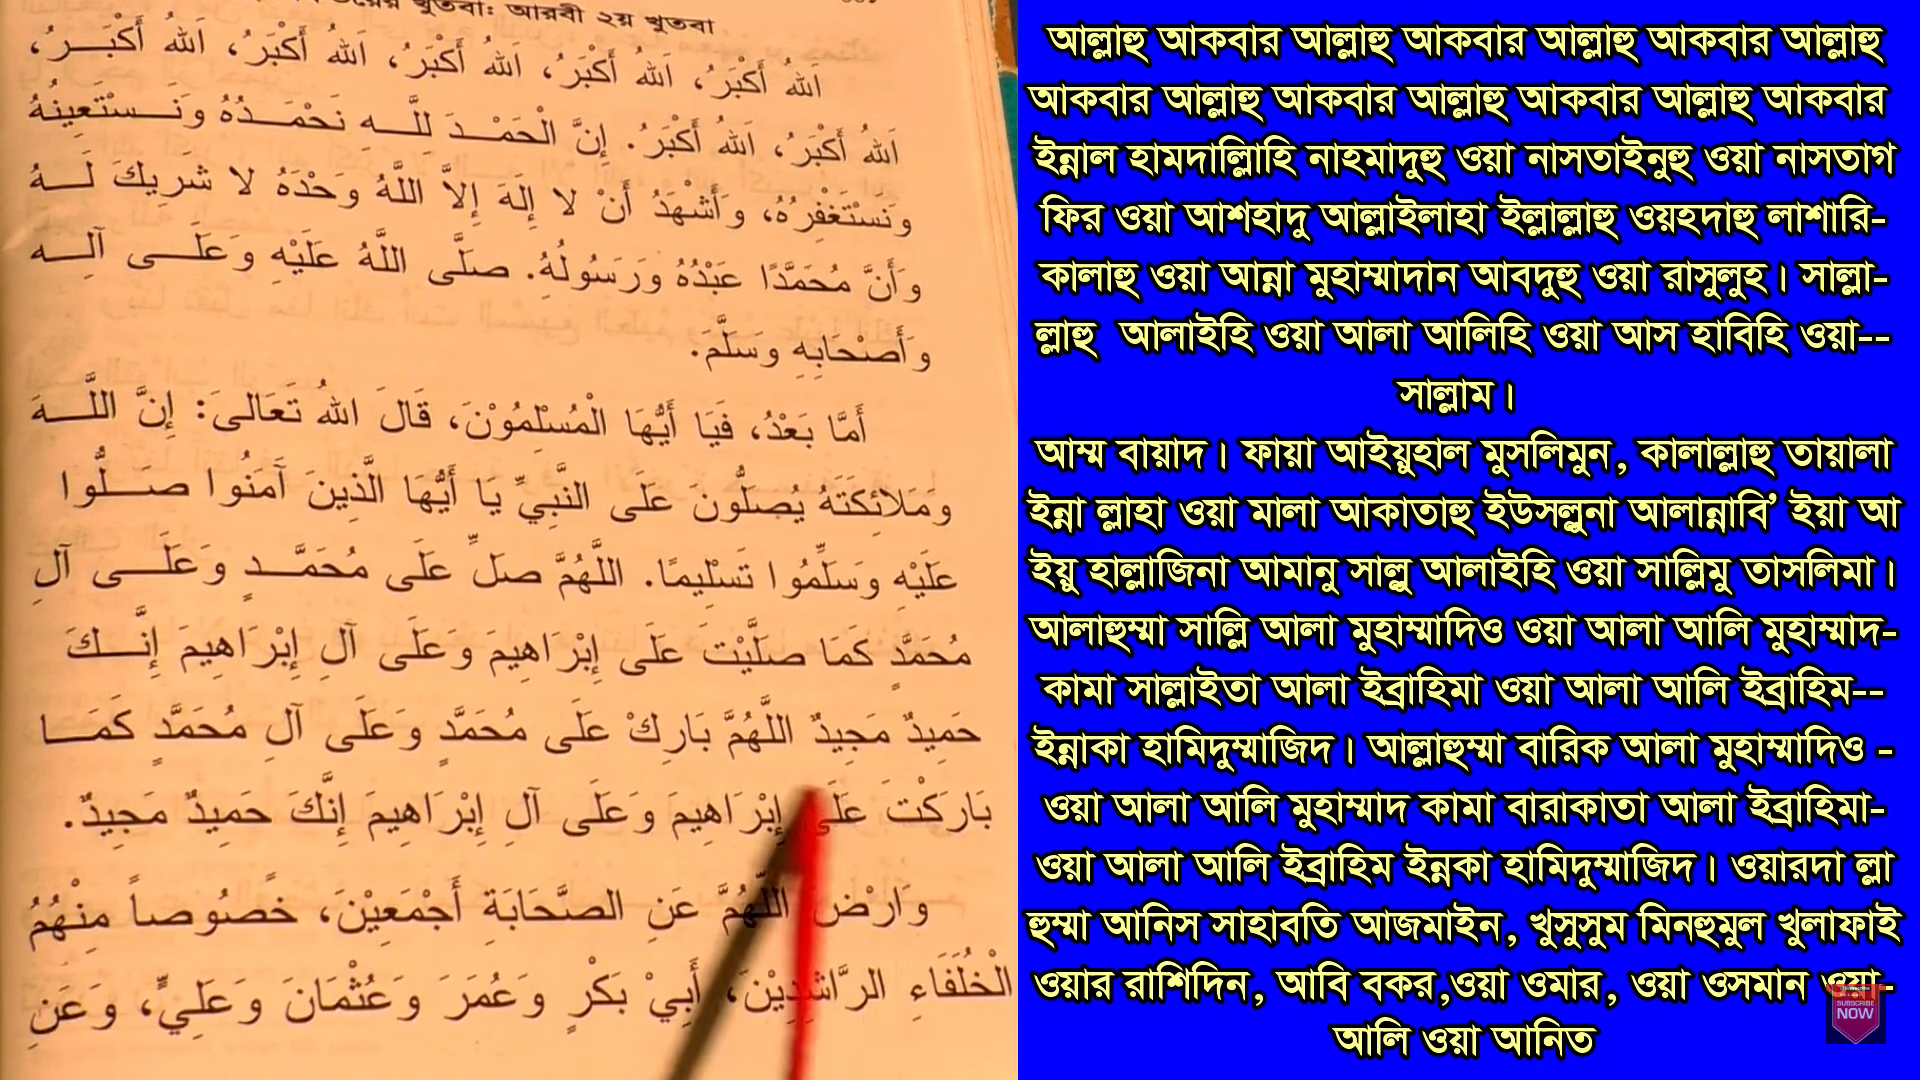 খুতবা: আরবী ২য় খুতবা
اَللهُ أَكْبَرُ، اَللهُ أَكْبَرُ، اَللهُ أَكْبَرُ، اَللهُ أَكْبَرُ، اَللهُ أَكْبَـــرُ،
اَللهُ أَكْبَرُ، اَللهُ أَكْبَرُ. إِنَّ الْحَمْـــدَ لِلَّـــهِ نَحْمَـــدُهُ وَنَـــسْتَعِينُهُ
وَنَسْتَغْفِرُهُ، وَأَشْهَدُ أَنْ لا إِلَهَ إِلاَّ اللَّهُ وَحْدَهُ لا شَرِيكَ لَـــهُ
وَأَنَّ مُحَمَّدًا عَبْدُهُ وَرَسُولُهُ. صَلَّى اللَّهُ عَلَيْهِ وَعَلَـــى آلِـــه
وَأَصْحَابِهِ وَسَلَّمَ.
أَمَّا بَعْدُ، فَيَا أَيُّهَا الْمُسْلِمُوْنَ، قَالَ اللهُ تَعَالىَ: إِنَّ اللَّـــهَ
وَمَلائِكَتَهُ يُصَلُّونَ عَلَى النَّبِيِّ يَا أَيُّهَا الَّذِينَ آَمَنُوا صَـــلُّوا
عَلَيْهِ وَسَلِّمُوا تَسْلِيمًا. اللَّهُمَّ صَلِّ عَلَى مُحَمَّـــدٍ وَعَلَـــى آلِ
مُحَمَّدٍ كَمَا صَلَّيْتَ عَلَى إِبْرَاهِيمَ وَعَلَى آلِ إِبْرَاهِيمَ إِنَّـــكَ
حَمِيدٌ مَجِيدٌ اللَّهُمَّ بَارِكْ عَلَى مُحَمَّدٍ وَعَلَى آلِ مُحَمَّدٍ كَمَـــا
بَارَكْتَ عَلَى إِبْرَاهِيمَ وَعَلَى آلِ إِبْرَاهِيمَ إِنَّكَ حَمِيدٌ مَجِيدٌ.
وَارْضَ اللّهُمَّ عَنِ الصَّحَابَةِ أَجْمَعِيْنَ، خَصُوصاً مِنْهُمُ
الْخُلَفَاءِ الرَّاشِدِيْنَ، أَبِيْ بَكْرٍ وَعُمَرَ وَعُثْمَانَ وَعَلِيٍّ، وَعَنِ
আল্লাহু আকবার আল্লাহু আকবার আল্লাহু আকবার আল্লাহু
আকবার আল্লাহু আকবার আল্লাহু আকবার আল্লাহু আকবার
ইন্নাল হামদাল্লািহি নাহমাদুহু ওয়া নাসতাইনুহু ওয়া নাসতাগ
ফির ওয়া আশহাদু আল্লাইলাহা ইল্লাল্লাহু ওয়হদাহু লাশারি-
কালাহু ওয়া আন্না মুহাম্মাদান আবদুহু ওয়া রাসুলুহ। সাল্লা-
ল্লাহু আলাইহি ওয়া আলা আলিহি ওয়া আস হাবিহি ওয়া--
সাল্লাম।
আম্ম বায়াদ। ফায়া আইয়ুহাল মুসলিমুন, কালাল্লাহু তায়ালা
ইন্না ল্লাহা ওয়া মালা আকাতাহু ইউসল্লুনা আলান্নাবি’ ইয়া আ
ইয়ু হাল্লাজিনা আমানু সাল্লু আলাইহি ওয়া সাল্লিমু তাসলিমা।
আলাহুম্মা সাল্লি আলা মুহাম্মাদিও ওয়া আলা আলি মুহাম্মাদ-
কামা সাল্লাইতা আলা ইব্রাহিমা ওয়া আলা আলি ইব্রাহিম--
ইন্নাকা হামিদুম্মাজিদ। আল্লাহুম্মা বারিক আলা মুহাম্মাদিও -
ওয়া আলা আলি মুহাম্মাদ কামা বারাকাতা আলা ইব্রাহিমা-
ওয়া আলা আলি ইব্রাহিম ইন্নকা হামিদুম্মাজিদ। ওয়ারদা ল্লা
হুম্মা আনিস সাহাবতি আজমাইন, খুসুসুম মিনহুমুল খুলাফাই
ওয়ার রাশিদিন, আবি বকর,ওয়া ওমার, ওয়া ওসমান ওয়া-
আলি ওয়া আনিত
SUBSCRIBE
NOW